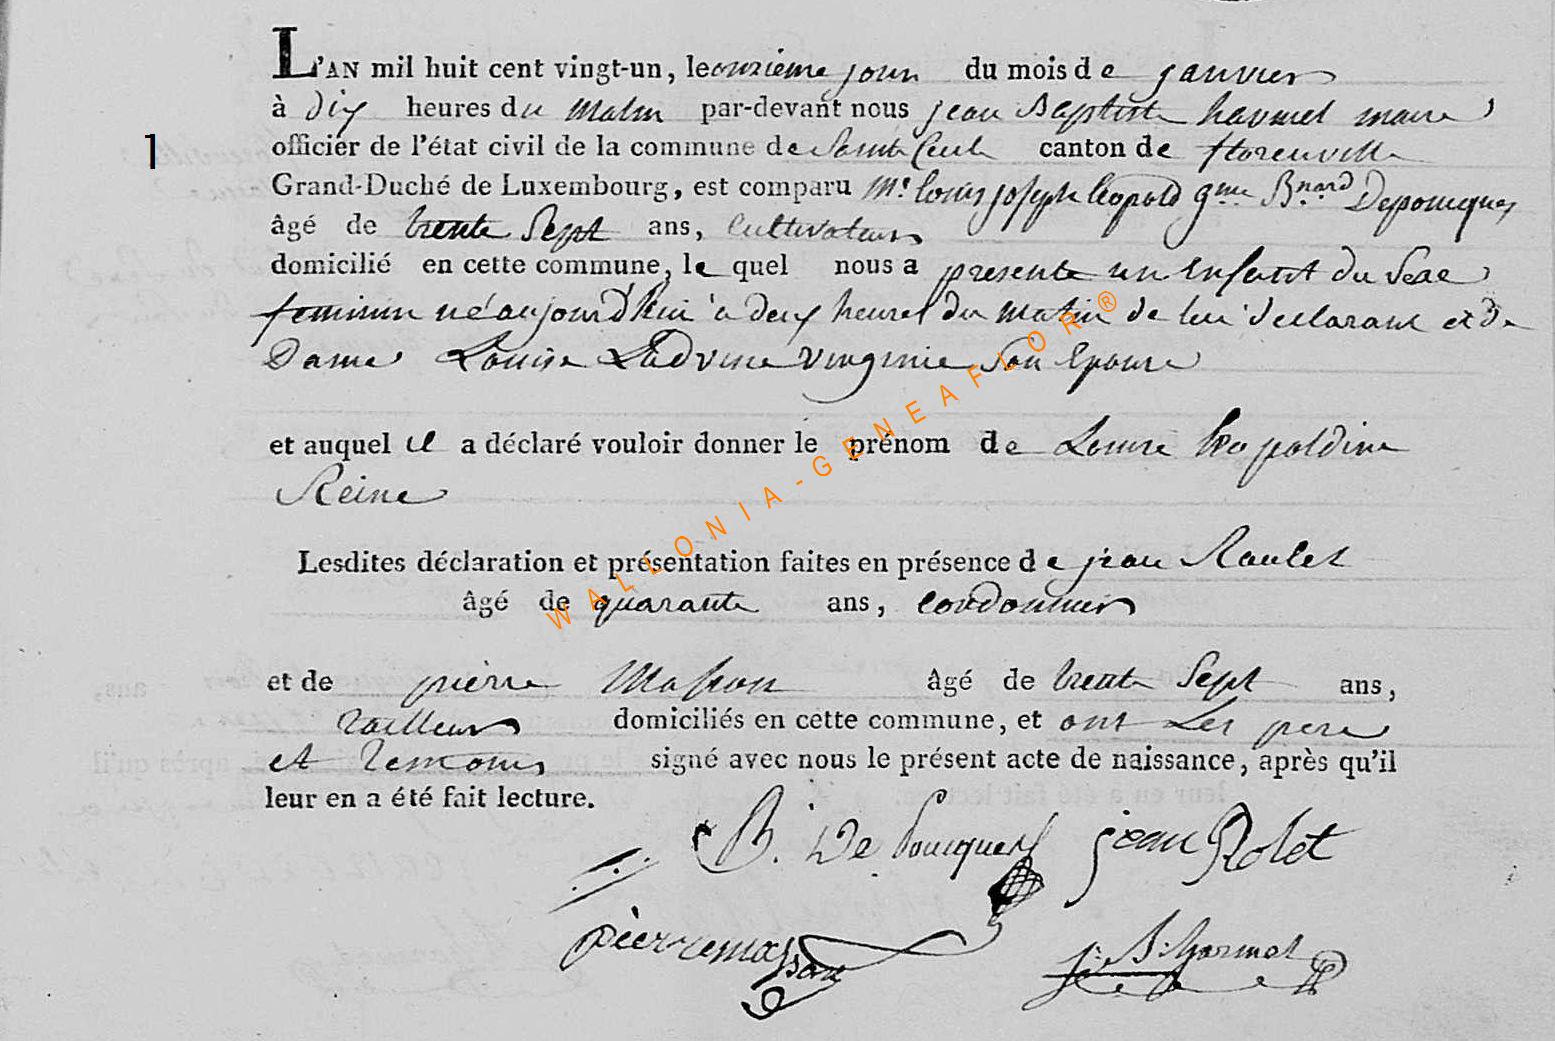 L'AN mil huit cent vingt-un, le onzieme jour du mois de janvier
à dix heures du matin par-devant nous jean Baptiste haumel maire
officier de l'état civil de la commune de Sainte Cecile canton de florenville
Grand-Duché de Luxembourg, est comparu Mr. louis joseph leopold gme Bnard Depouques
âgé de trente Sept ans, Cultivateur
domicilié en cette commune, le quel nous a presente un Enfant du Sexe
feminin né aujourd'hui à deux heures du matin de lui declarant et de
Dame Louise virginie Son Epouse
et auquel il a déclaré vouloir donner le prénom de Louise leopoldine
Reine
Lesdites déclaration et présentation faites en présence de jean Raulet
âgé de quarante ans, cordonnier
et de pierre Masson âgé de trente Sept ans,
tailleur domiciliés en cette commune, et ont Les pere
et temoins signé avec nous le présent acte de naissance, après qu'il
leur en a été fait lecture.
B. De Poucques jean Rolet
pierre masson j: B: harmel
1
WALLONIA-GENEAFLOR®